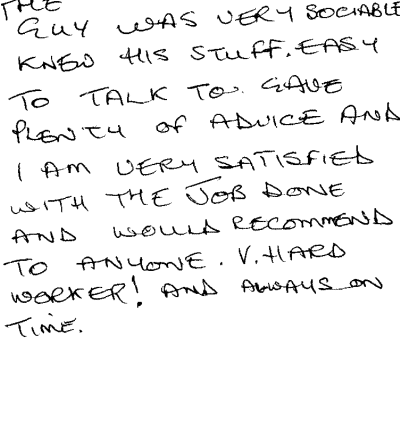 THE
GUY WAS VERY SOCIABLE
KNEW HIS STUFF. EASY
TO TALK TO. GAVE
PLENTY OF ADVICE AND
I AM VERY SATISFIED
WITH THE JOB DONE
AND WOULD RECOMMEND
TO ANYONE. V. HARD
WORKER! AND ALWAYS ON
TIME.